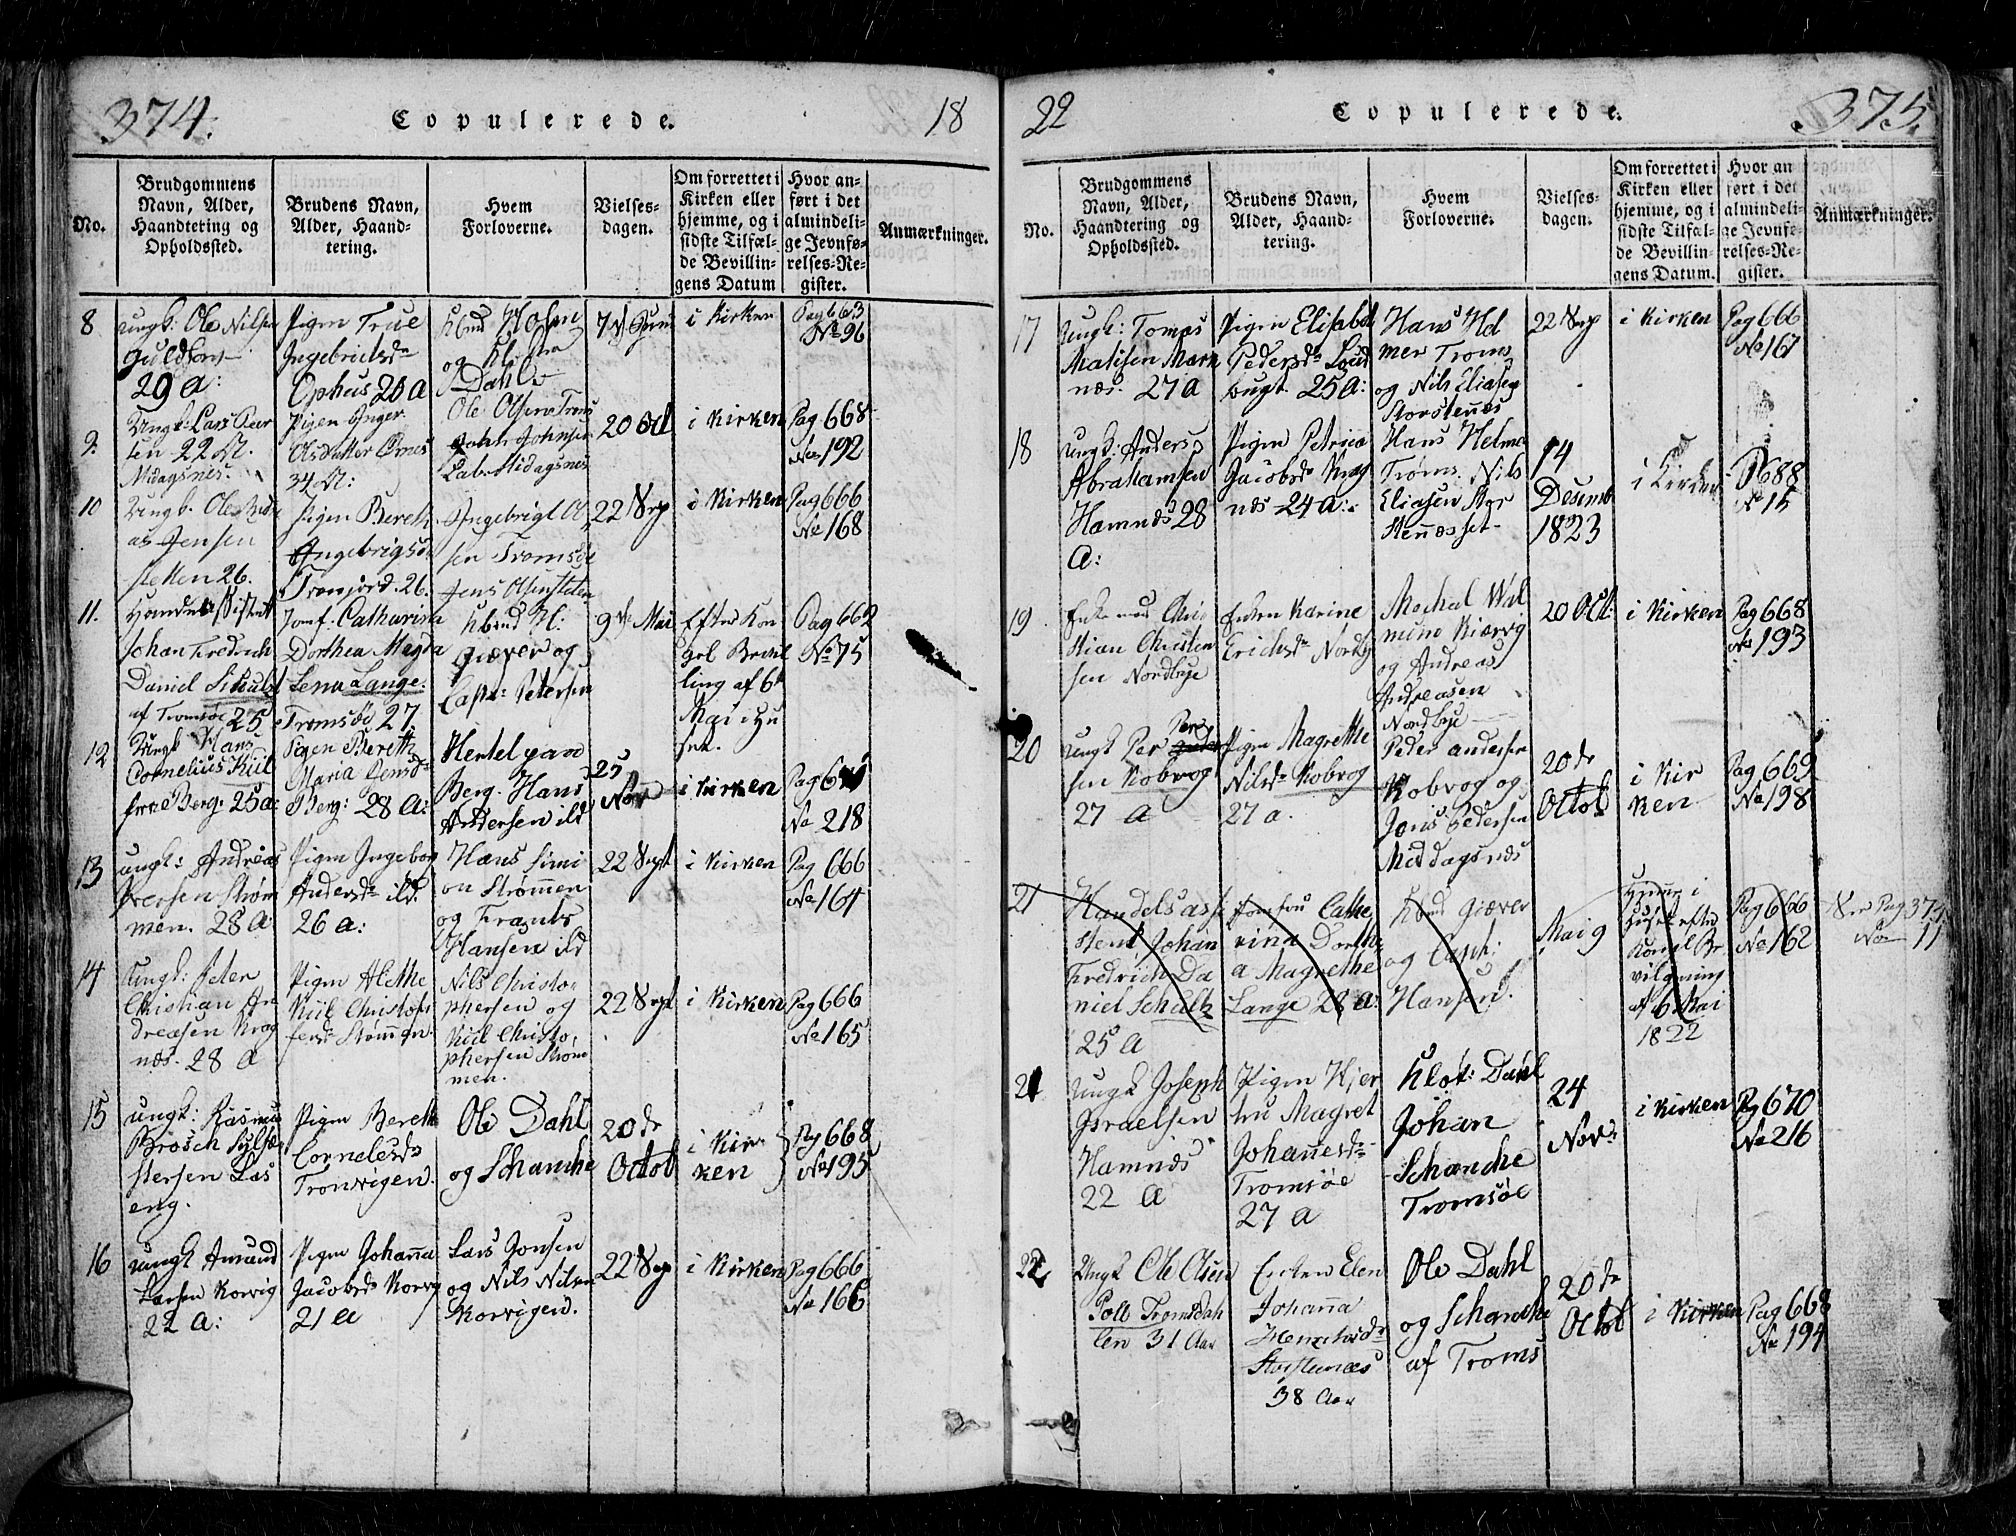 374.
Copulerede.
18
No.
Brudgommens
Navn, Alder,
Haandtering og
Opholdssted.
Brudens Navn,
Alder, Haand-
tering.
Hvem
Forloverne.
Vielses-
dagen.
Om forrettet i
Kirken eller
hjemme, og i
sidste Tilfæl-
de Bevillin-
gens Datum
Hvor an-
ført i det
almindeli-
ge Jevnfø-
relses-Re-
gister.
Anmærkninger.
8
ungk: Ole Nilsen
29 a:
Pigen True
Ingebrictsdr
Ophus 20 a
og
Dahl
i Kirken
Pag 663
No 96
9.
Ungk: Lars Peer
sen 22 A.
Midagsnes.
Pigen Inger
Olsdatter
34 A:
Ole Olsen Troms
John Johnsen
Midagsnes
20 Oct
i Kirken
Pag 668
No 192
10
Ungk. Ole
as Jensen
stetten 26.
Pigen Bereth
Ingebrigtsdr
Tromjord. 26.
Ingebrigt Ol
sen Tromsøe
Jens Olsen
22 Sep
i Kirken
Pag 666
No 168
11.
Handelsassistent
Johan Fredrich
Daniel Schultz
af Tromsøe 25
Jomf. Catharina
Dorthea Magda
Lena Lange.
Tromsöe 27
Giæver og
Capt: Petersen
9 Mai
Efter Kon
gel Bevil
ling af 6t
Mai i Hu
set.
Pag 662
No 75
12
Ungk Hans
Cornelius Kiil
Berg. 25 a:
Pigen Bereth
Maria Jensdr
Berg: 28 A:
Hertel paa
Berg. Hans
Andersen ild
25
Nov
i Kirken
No 218
13
ungk: Andreas
Iversen Strøm
men. 28 A
Pigen Ingebor
Andersdr ild.
26 a:
Hans Simi
on Strømmen
og Frants
Hansen ild
22 Sept
i Kirken
Pag 666
No 164
14
Ungk: Peter
Christian An
dreasen Krog
næs. 28 A
Pigen Alethe
Kiil Christof
fersdr Strømmen
Nils Christo
phersen og
Kiil Christo
phersen Strøm
men.
22 Sept
i Kirken
Pag 666
No 165
15
ungk: Rasmus
Brosch
stersen Las
eng.
Pigen Bereth
Cornelsdr
Tronvigen.
Ole Dahl
og Schanche
20 de
Octob
i Kir
ken
Pag 668
No 195
16
ungk Amund
Larsen Korvig
22 A:
Pigen Johanna
Jacobsdr Korvg
21 a
Lars Jonsen
og Nils Nilsen
Korvigen.
22 Sep
i Kirken
Pag 666
No 166
22
Copulerede.
375.
No.
Brudgommens
Navn, Alder,
Haandtering og
Opholdssted.
Brudens Navn,
Alder, Haand-
tering.
Hvem
Forloverne.
Vielses-
dagen.
Om forrettet i
Kirken eller
hjemme, og i
sidste Tilfæl-
de Bevillin-
gens Datum.
Hvor an
ført i det
almindeli-
ge Jevnfø-
relses-Re-
gister.
Anmærkninger.
17
Ungk: Tomas
Matisen
næs. 27 A
Pigen Elisabet
Pedersdr
bugt. 25 A:
Hans Hel
mer Troms
og Nils Eliasen
Storstennes
22 Sep
i Kirken
Pag 666
No 167
18
ungk: Anders
Abrahamsen
Hamnæs 28
A:
Pigen Petrica
Jacobsdr Krog
næs 24 A:
Hans Helme
Troms. Nils
Eliasen Stor
Stennæsset
14
Desemb
1823
i Kirken
P 688
No 15
19
Enkemand Chri
stian Christen
sen Nordbye
Enken Karine
Erichsdr Nordby
Mechal Wal
mine Kiærvg
og Andreas
Andreasen
Nordbye
20 Oct:
i Kirken
Pag 668
No 193
20
ungk Per Per
sen Kobvog
27 A
Pigen Magrethe
Nilsdr Kobvog
27 a.
Peder andersen
Kobvog og
Jons Pedersen
Middagsnæs
20 de
Octob
i Kir
ken
Pag 669
No 198
21
Handelsassi
stent Johan
Fredrich Da
niel Schultz
25 A
Jomfru Cathe
rina Dorthe
a Magrethe
Lange 28 A:
Giæver
og Capt:
Hansen.
Mai 9
Huset efter
Kongl Be
vilgning
af 6 Mai
1822
Pag 666
No 162
Se Pag 374
No 11
21
Ungk Joseph
Israelsen
Hamnæs
22 A
Pigen Kjer
tru Magret
Johanesdr
Tromsøe
27 A
Klok: Dahl
Johan
Schanche
Tromsöe
24
Nov:
i Kirken
Pag 670
No 216
22
Ungk Ole Olsen
Poll Tromsdah
len 31 Aar
Enken Elen
Johanna
Storstennæs
38 Aar
Ole Dahl
og Schanche
af Troms
20 de
Octob
i Kirken
Pag 668
No 194